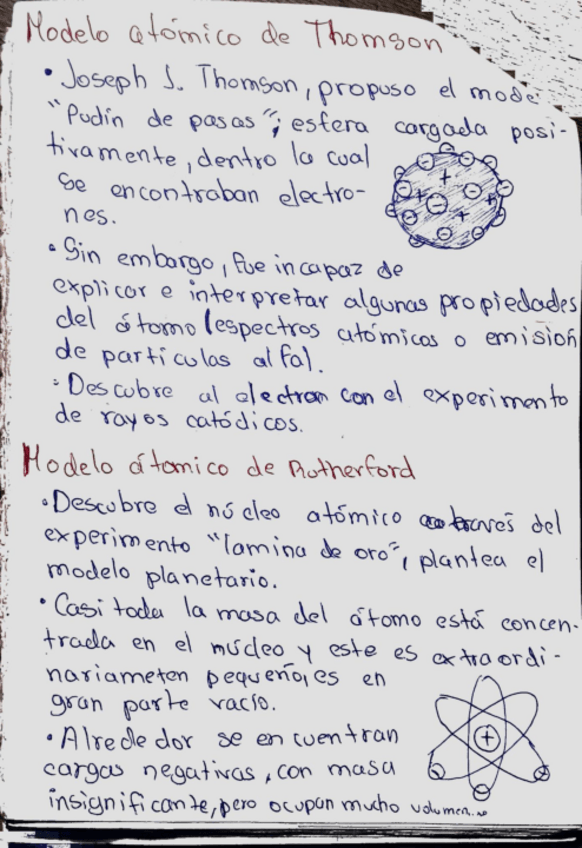 Modelo atómico de Thomson
• Joseph J. Thomson, propuso el mode
"Pudín de pasas"; esfera cargada posi-
tivamente, dentro la cual
se encontraban electro-
nes.
• Sin embargo, fue incapaz de
explicar e interpretar algunas propiedades
del átomo (espectros atómicos o emisión
de partículas alfa).
• Descubre al electron con el experimento
de rayos catódicos.
Modelo átomico de Rutherford
• Descubre el núcleo atómico a traves del
experimento "lamina de oro", plantea el
modelo planetario.
• Casi toda la masa del átomo está concen-
trada en el núcleo y este es extraordi-
nariameten pequeño, es en
gran parte vacío.
• Alrededor se encuentran
cargas negativas, con masa
insignificante, pero ocupan mucho volumen.